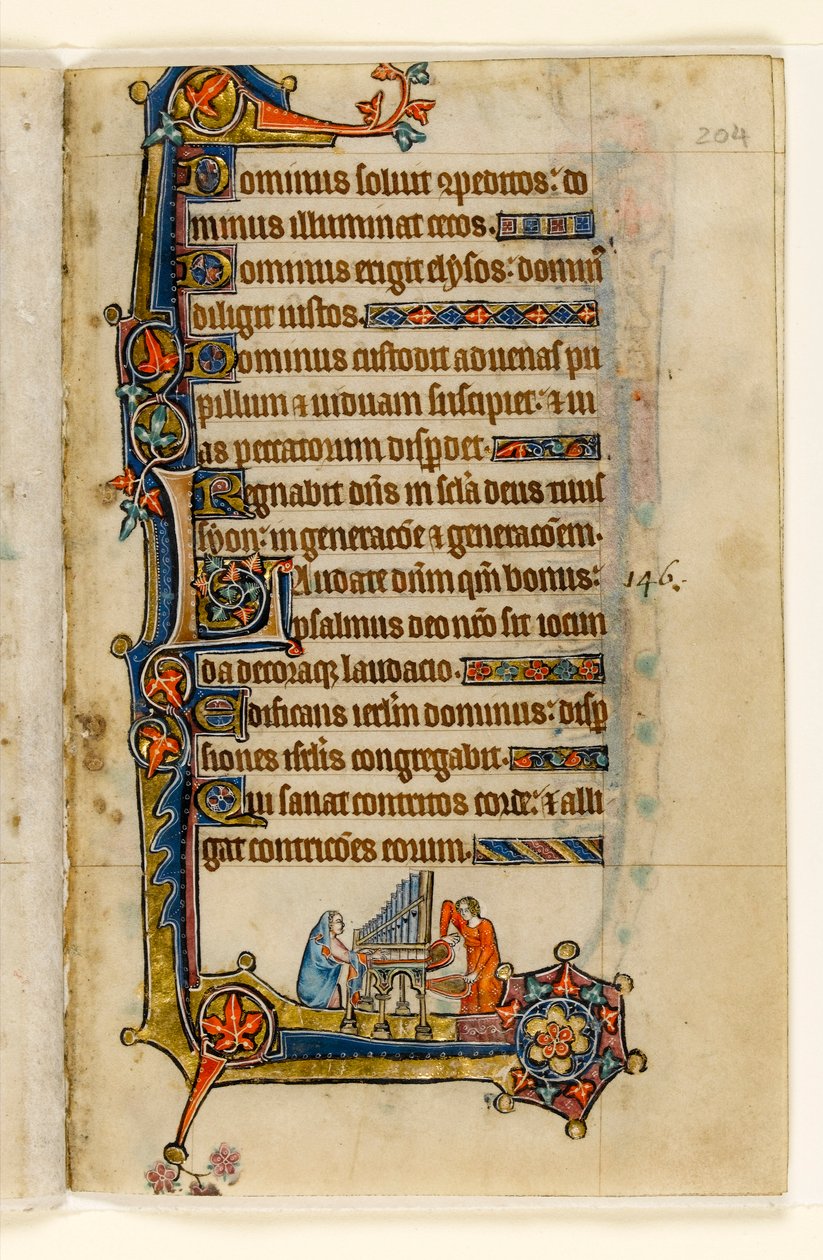 204
Dominus soluit ꝯpeditos: do
minus illuminat cecos.
Dominus erigit elysos: domin᷒
diligit iustos.
Dominus custodit aduenas pu
pillum ⁊ uiduam suscipiet: ⁊ ui
as peccatorum disꝑdet.
Regnabit dn̄s in scl̄a deus tuus
syon: in generacōe ⁊ generacōem.
Laudate dn̄m qm̄ bonus: 146.
psalmus deo nr̄o sit iocun
da decoraqꝫ laudacio.
Edificans ierl̄m dominus: disꝑ
siones isrl̄is congregabit.
Qui sanat contritos corde: ⁊ alli
gat contricōes eorum.